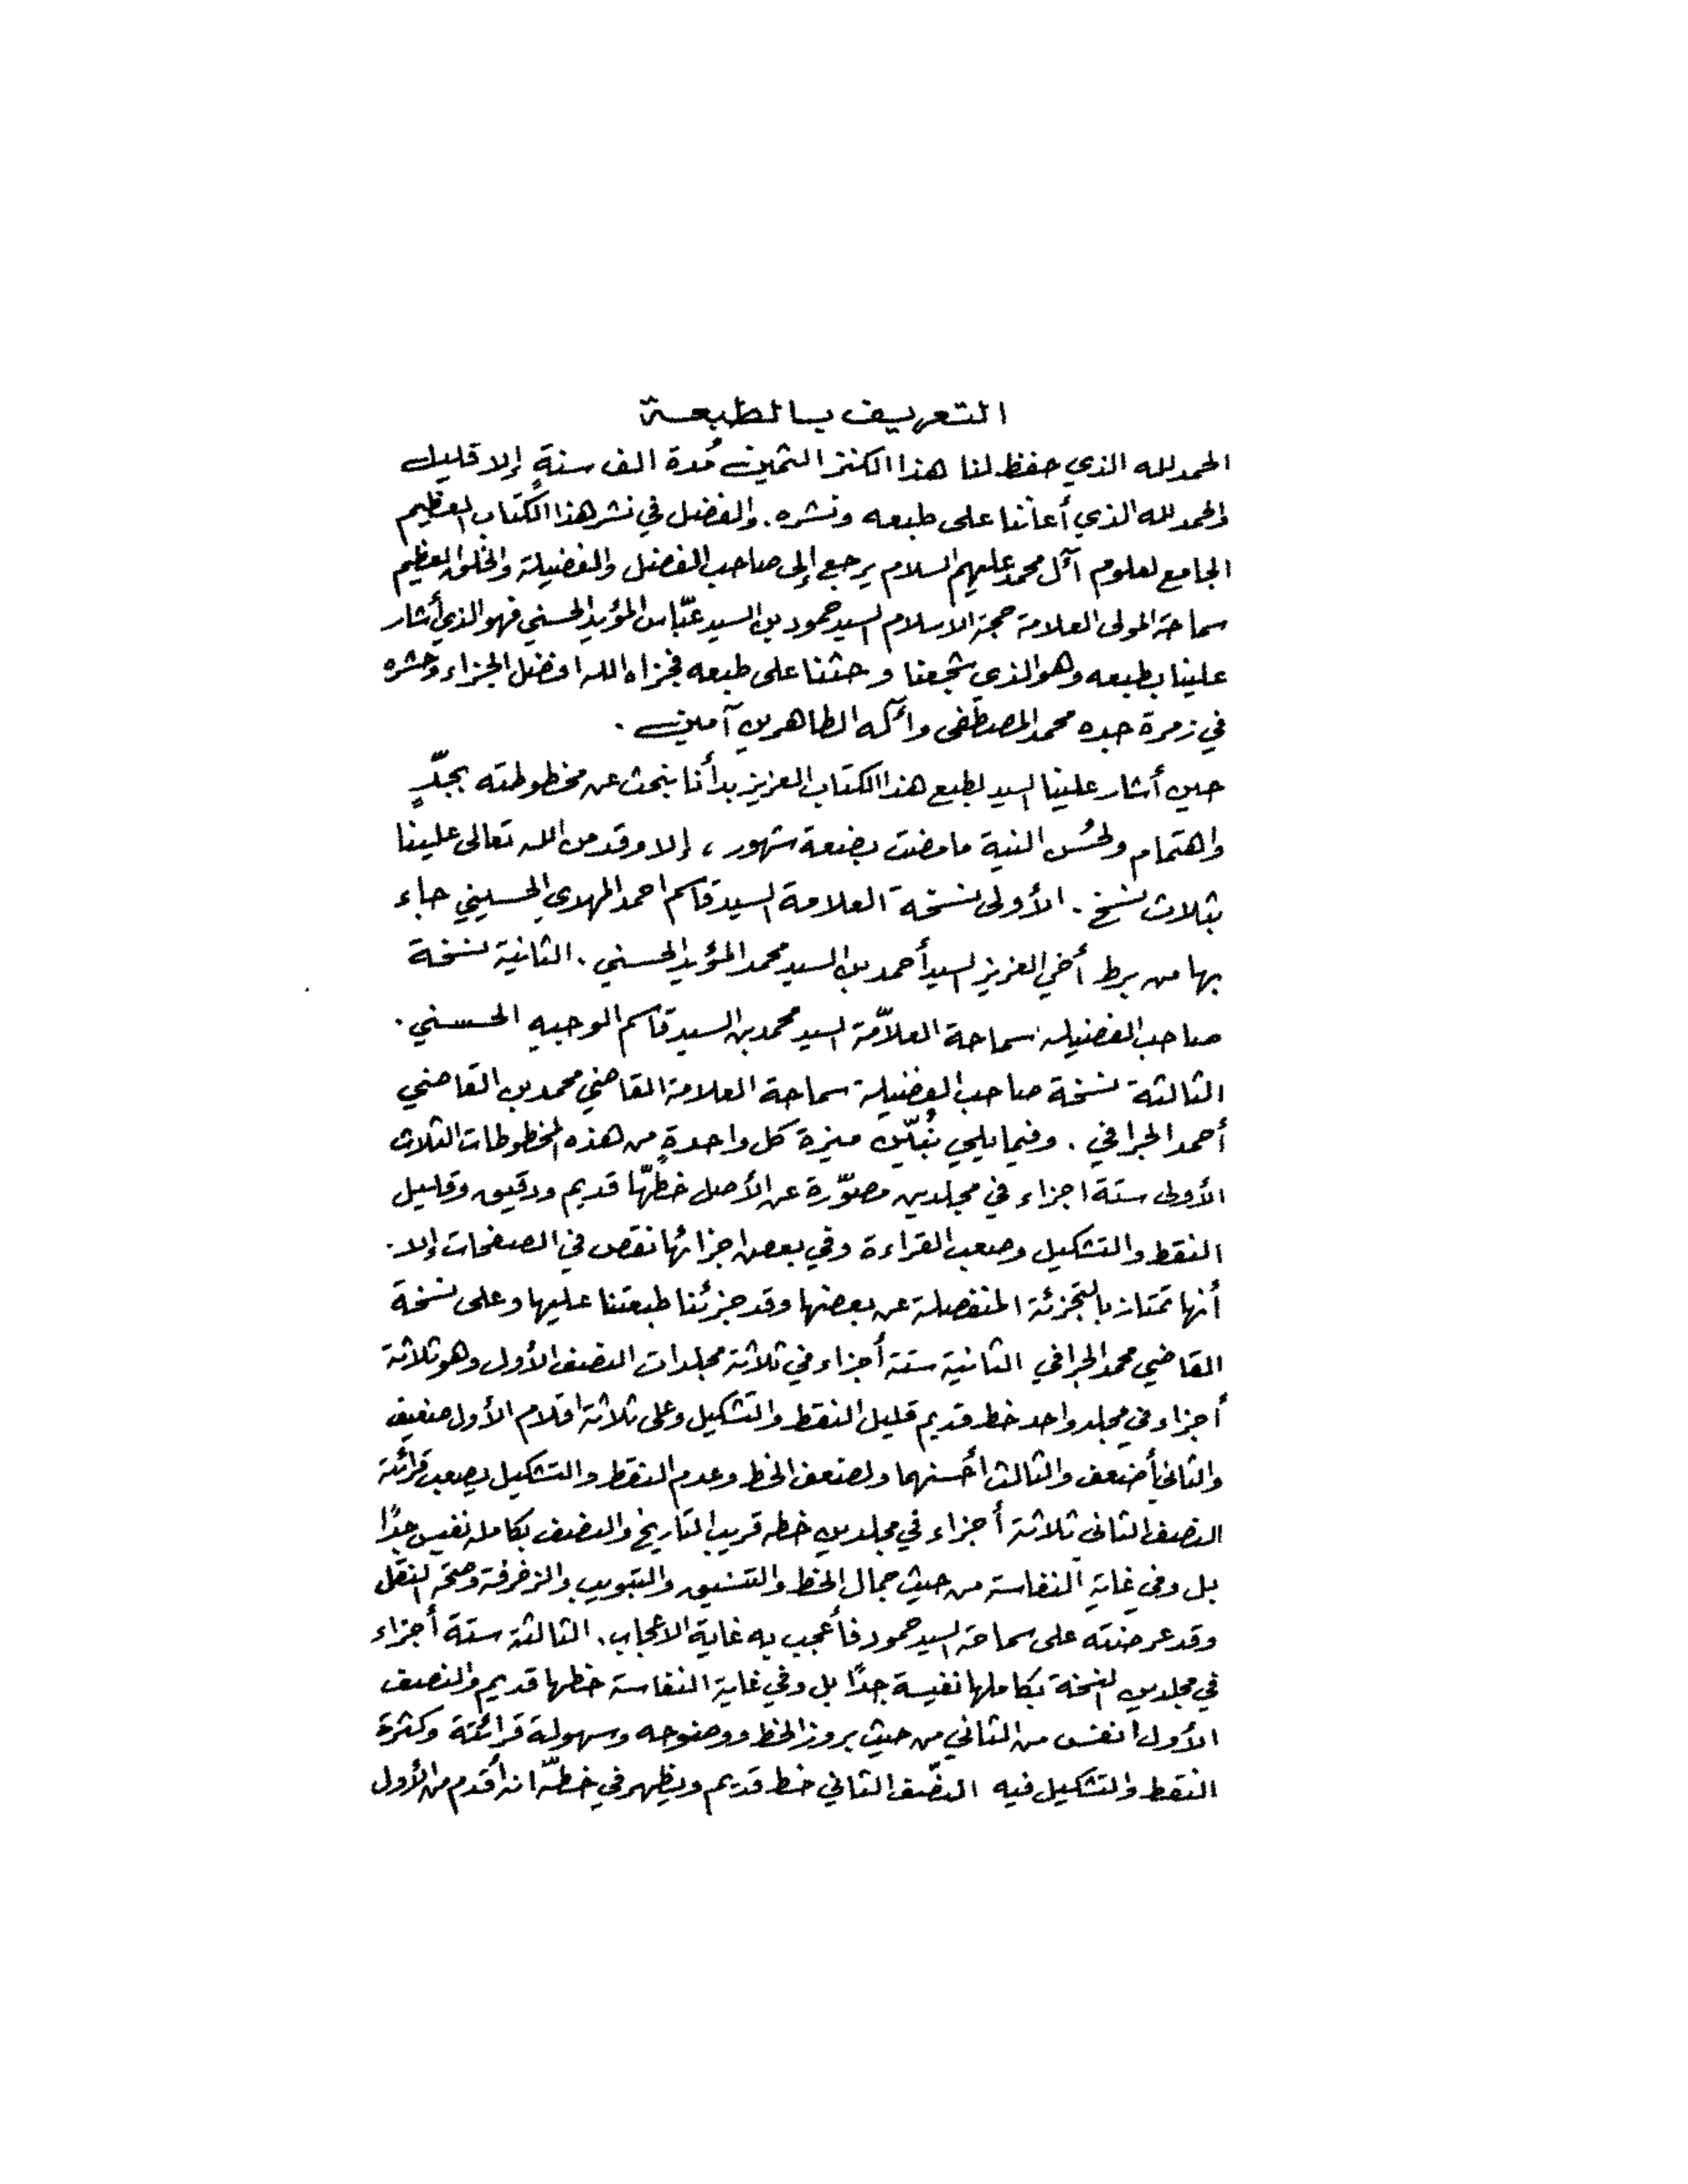 التعريف بالطبعة
الحمد لله الذي حفظ لنا هذا الكنز الثمين مُدة الف سنةٍ إلا قليل
والحمد لله الذي أعاننا على طبعه ونشره. والفضل في نشر هذا الكتاب العظيم
الجامع لعلوم آل محمد عليهم السلام يرجع إلى صاحب الفضل والفضيلة والخلق العظيم
سماحة المولى العلامة حجة الاسلام السيد حمود بن السيد عبّاس المؤيد الحسني فهو الذي أشار
علينا بطبعه وهو الذي شجعنا وحثنا على طبعه فجزاه الله افضل الجزاء وحشره
في زمرة جده محمد المصطفى وآله الطاهرين آمين .
حين أشار علينا السيد لطبع هذا الكتاب العزيز بدأنا نبحث عن مخطوطته بجدٍّ
واهتمام ولحُسن النية مامضت بضعة شهور ، إلا وقد من الله تعالى علينا
بثلاث نسخ . الأولى نسخة العلامة السيد قاسم احمد المهدي الحسيني جاء
بها من برط أخي العزيز السيد أحمد بن السيد محمد المؤيد الحسني . الثانية نسخة
صاحب الفضيلة سماحة العلاّمة السيد محمد بن السيد قاسم الوجيه الحسني .
الثالثة نسخة صاحب الفضيلة سماحة العلامة القاضي محمد بن القاضي
أحمد الجرافي . وفيما يلي نُبيّن ميزة كل واحدةٍ من هذه المخطوطات الثلاث
الأولى ستة اجزاء في مجلدين مصوّرة عن الأصل خطّها قديم ودقيق وقليل
النقط والتشكيل وصعب القراءة وفي بعض اجزائها نقص في الصفحات إلا .
أنها تمتاز بالتجزئة المنفصلة عن بعضها وقد جزئنا طبعتنا عليها وعلى نسخة
القاضي محمد الجرافي الثانية ستة أجزاء في ثلاثة مجلدات النصف الأول وهو ثلاثة
أجزاء في مجلد واحد خط قديم قليل النقط والتشكيل وعلى ثلاثة اقلام الأول ضعيف
والثاني أضعف والثالث أحسنهما ولضعف الخط وعدم النقط والتشكيل يصعب قرائته
النصف الثاني ثلاثة أجزاء في مجلدين خطه قريب التاريخ والنصف بكامله نفيس جدًا
بل وفي غاية النفاسة من حيث جمال الخط والتنسيق والتبويب والزخرفة وصحة النقل
وقد عرضته على سماحة السيد حمود فأعجب به غاية الاعجاب . الثالثة ستة أجزاء
في مجلدين النسخة بكاملها نفيسة جدًا بل وفي غاية النفاسة خطها قديم والنصف
الأول انفس من الثاني من حيث بروز الخط ووضوحه وسهولة قرائته وكثرة
النقط والتشكيل فيه النصف الثاني خط قديم ويظهر في خطه انه أقدم من الأول